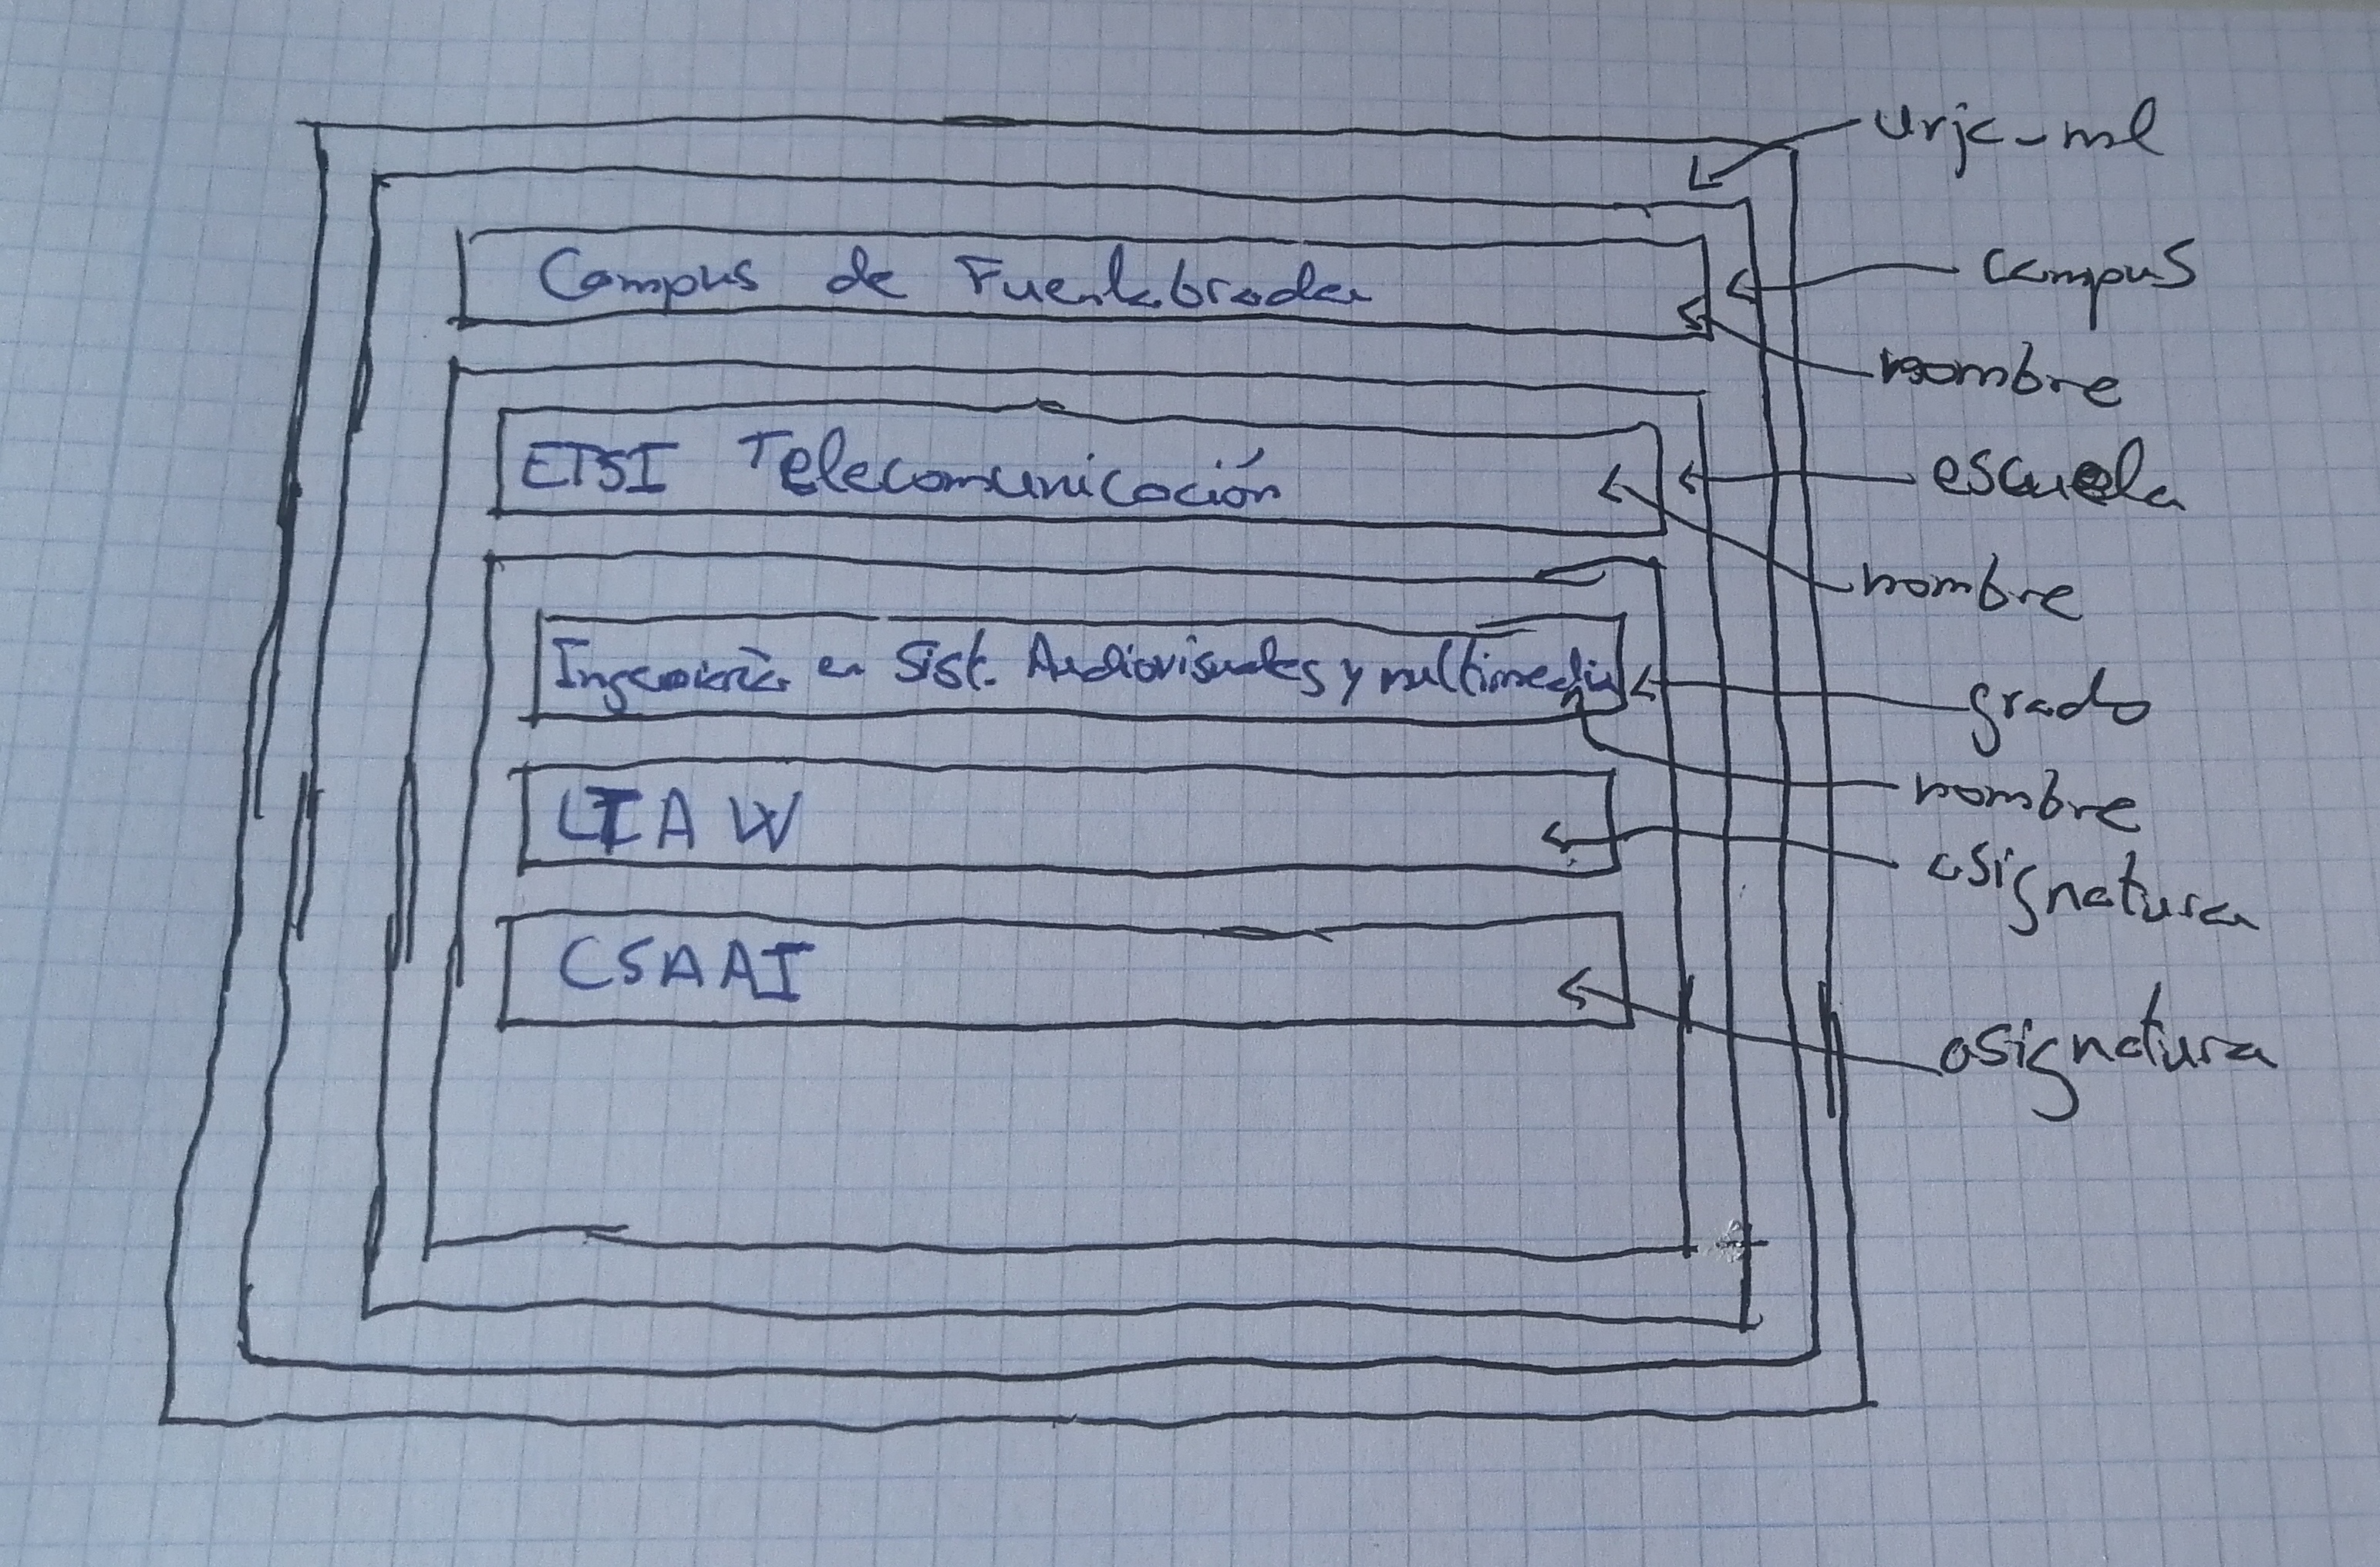 urjc-ml
Campus de Fuenlabrada
campus
nombre
ETSI Telecomunicación
escuela
nombre
Ingeniería en Sist. Audiovisuales y multimedia
grado
nombre
LTAW
asignatura
CSAAI
asignatura